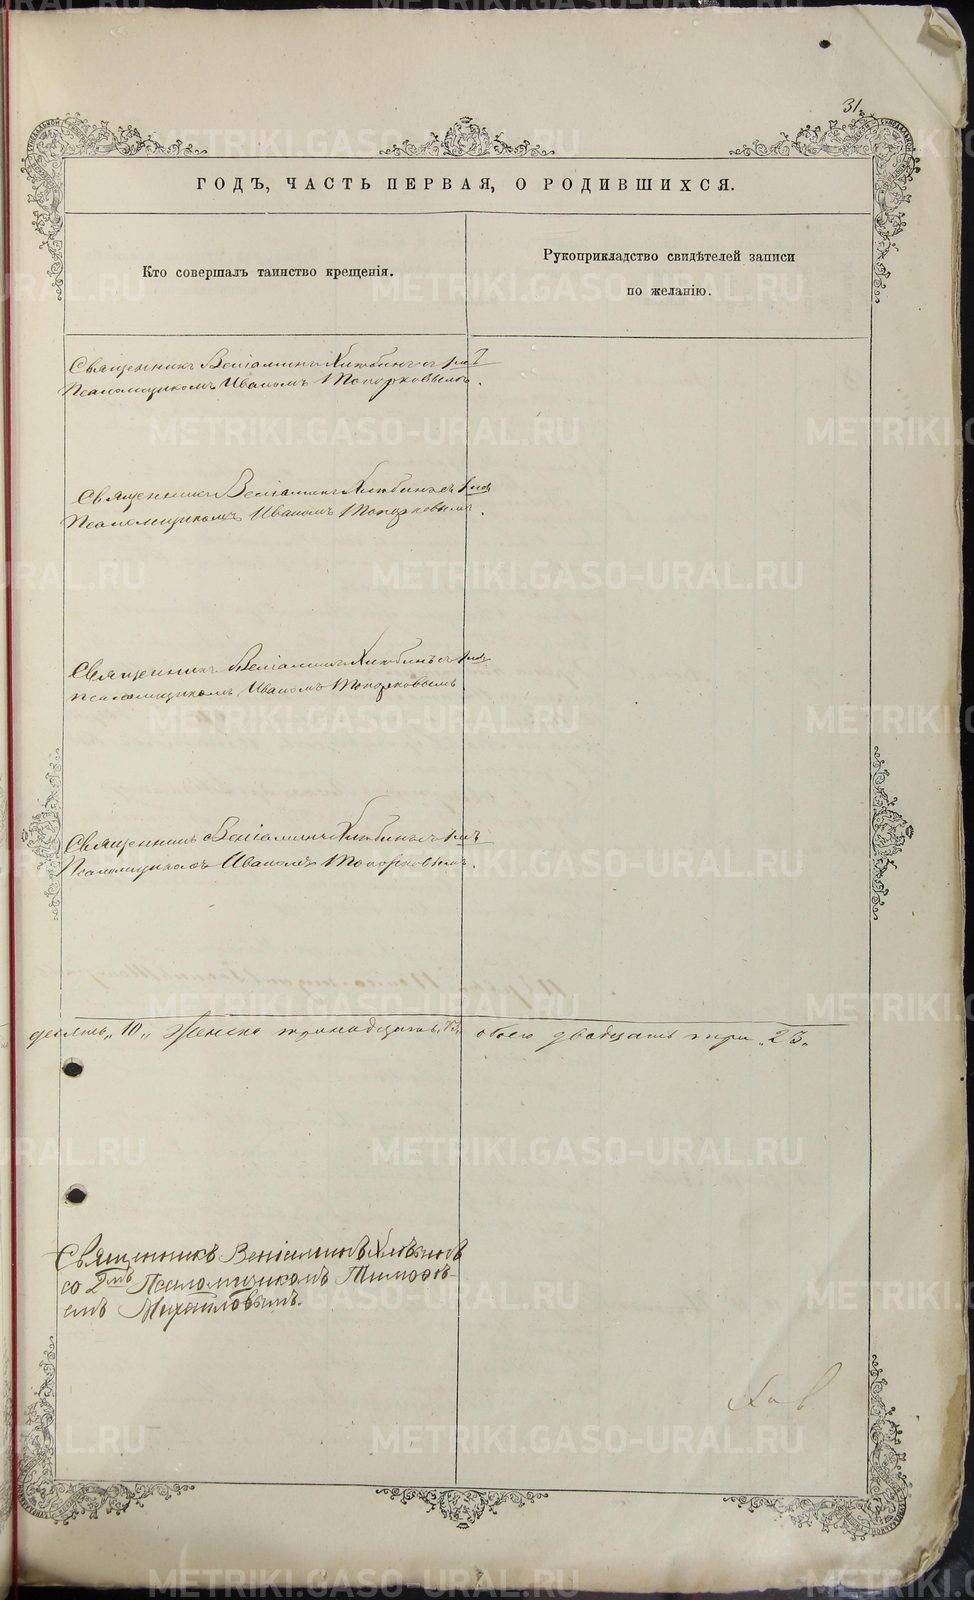 31.
ГОДЪ, ЧАСТЬ ПЕРВАЯ, О РОДИВШИХСЯ.
Кто совершалъ таинство крещенія.
Рукоприкладство свидѣтелей записи
по желанію.
Священникъ Веніаминъ Хлѣбинъ съ 1мъ
Псаломщикомъ Иваномъ Топорковымъ.
Священникъ Веніаминъ Хлѣбинъ съ 1мъ
Псаломщикомъ Иваномъ Топорковымъ.
Священникъ Веніаминъ Хлѣбинъ съ 1мъ
псаломщикомъ Иваномъ Топорковымъ
Священникъ Веніаминъ Хлѣбинъ съ 1мъ
Псаломщикомъ Иваномъ Топорковымъ.
десять „10„ Женска тринадцать „13„ обоего двадцать три „23„
Священникъ Веніаминъ Хлѣбинъ
со 2мъ Псаломщикомъ Тимоѳѣ-
емъ Михайловымъ.
METRIKI.GASO-URAL.RU